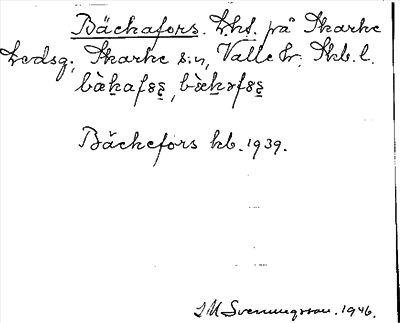 Bäckafors. Lht. på Skarke
Ledsg; Skarke s:n, Valle hr, Skb. l.
Bäckefors kb. 1939.
J M Svenungsson. 1946.